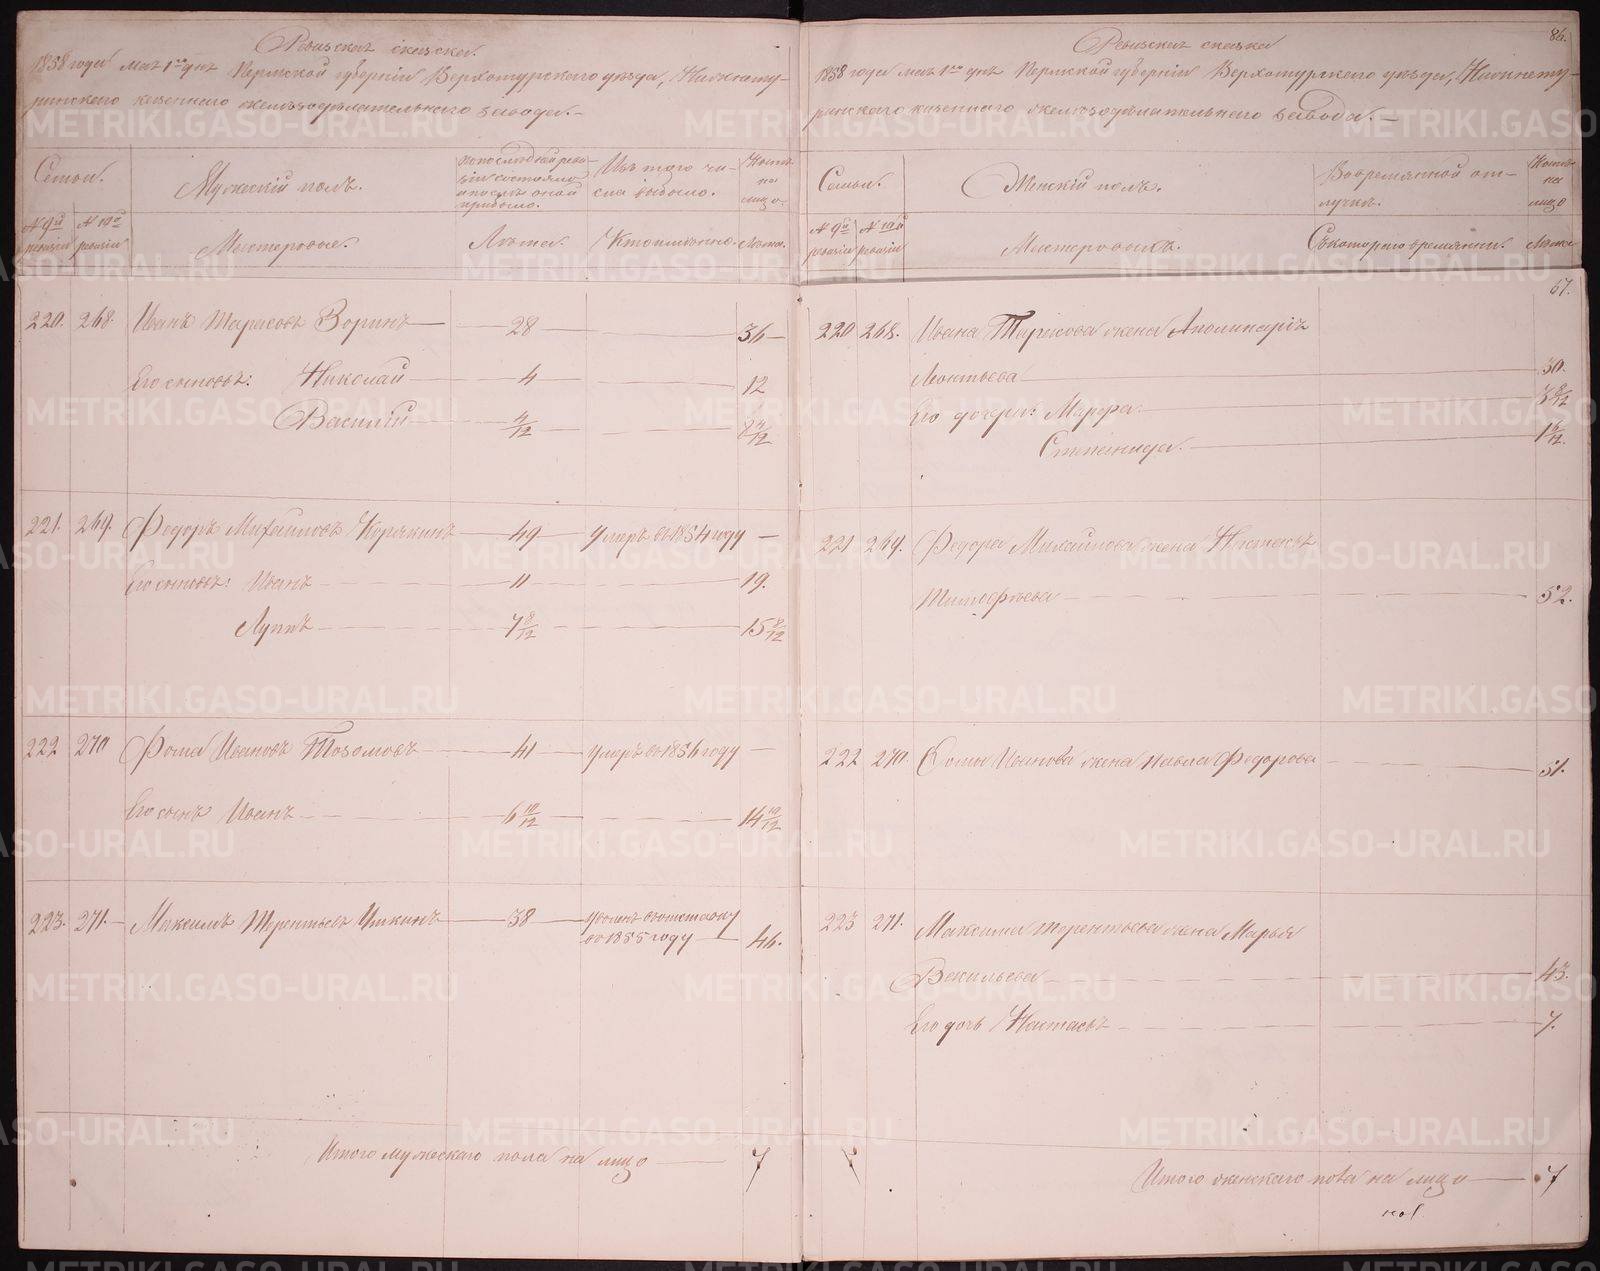 Ревизская сказка.
1858 года мая 1го дня Пермской губернiи Верхотурского уезда, Нижнету-
ринского казеннаго железоделательнаго завода.-
Семьи.
Мужескiй полъ.
По последней реви-
зiи состояло
и после оной
прибыло.
Изъ того чи-
сла выбыло.
Ныне
на
лицо.
№ 9й ревизiи
№ 10й ревизiи
Мастеровые.
Лета.
Кто именно.
Лета.
220. 268. Иванъ Тарасовъ Зоринъ 28 36
Его сыновья: Николай 4 12
Василiй 4/12 8 4/12
221. 269. Федоръ Михайловъ Корякинъ 49 Умеръ въ 1854 году
Его сыновья: Иванъ 11 19.
Луппъ 7 8/12 15 8/12
222 270 Фома Ивановъ 41 Умеръ въ 1856 году
Его сынъ Иванъ 6 10/12 14 10/12
223. 271. Максимъ Терентьевъ 38 Уволенъ въ отставку
въ 1855 году 46.
Итого мужескаго пола на лицо 7
86.
Ревизская сказка
1858 года мая 1го дня Пермской губернiи Верхотурского уезда, Нижнету-
ринского казеннаго железоделательнаго завода.-
Семьи.
Женскiй полъ.
Во временной от-
лучке.
Ныне
на
лицо
№ 9й ревизiи
№ 10й ревизiи
Мастеровыхъ.
Съ котораго времени.
Лета
67.
220 268. Ивана Тарасова жена Аполинарiя
Леонтьева 30.
Его дочери: Марфа 3 8/12
Степанида. 1 6/12.
221 269. Федора Михайлова жена Настасья
Тимофеева 52.
222 270. Фомы Иванова жена Павла Федорова 51.
223 271. Максима Терентьева жена Марья
Васильева 43.
Его дочь Настасья 7.
7
Итого женскаго пола на лицо 7
METRIKI.GASO-URAL.RU